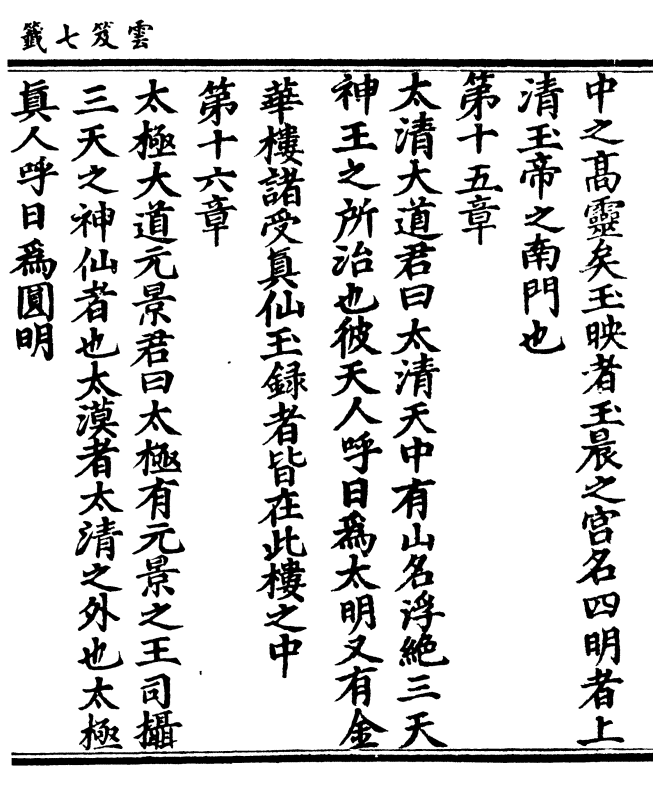 雲笈七籤
中之髙靈矣玉映者玉晨之宫名四明者上
清玉帝之南門也
第十五章
太清大道君曰太清天中有山名浮絶三天
神王之所治也彼天人呼日爲太明又有金
華樓諸受真仙玉録者皆在此樓之中
第十六章
太極大道元景君曰太極有元景之王司攝
三天之神仙者也太漠者太清之外也太極
真人呼日爲圓明